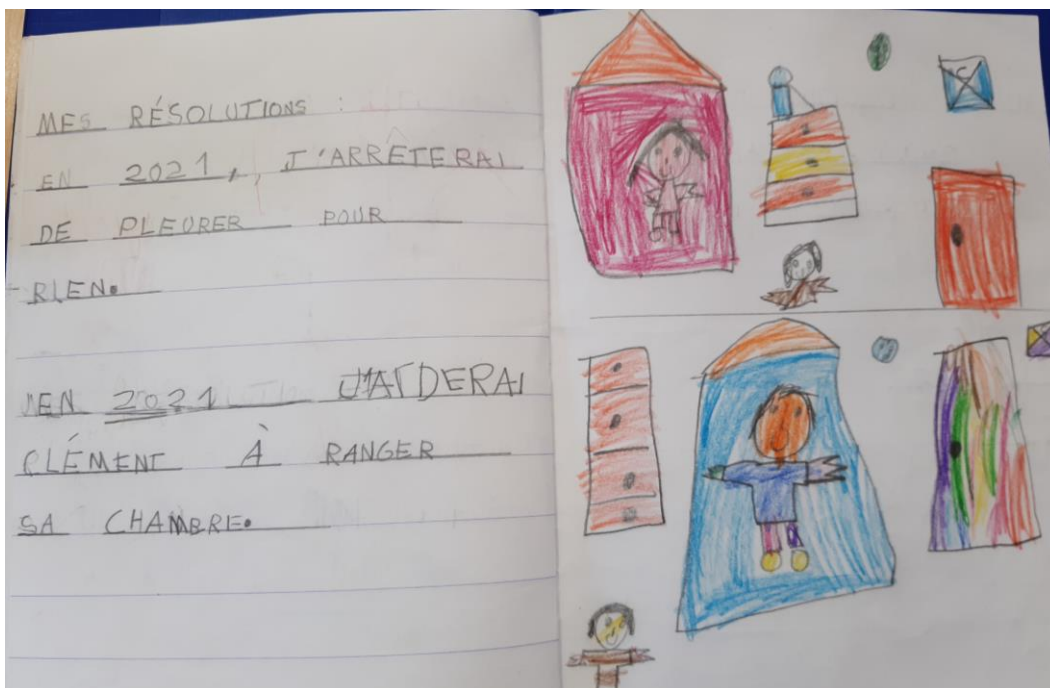 MES RÉSOLUTIONS :
EN 2021, J'ARRÊTERAI
DE PLEURER POUR
RIEN.
EN 2021 J'AIDERAI
CLÉMENT À RANGER
SA CHAMBRE.